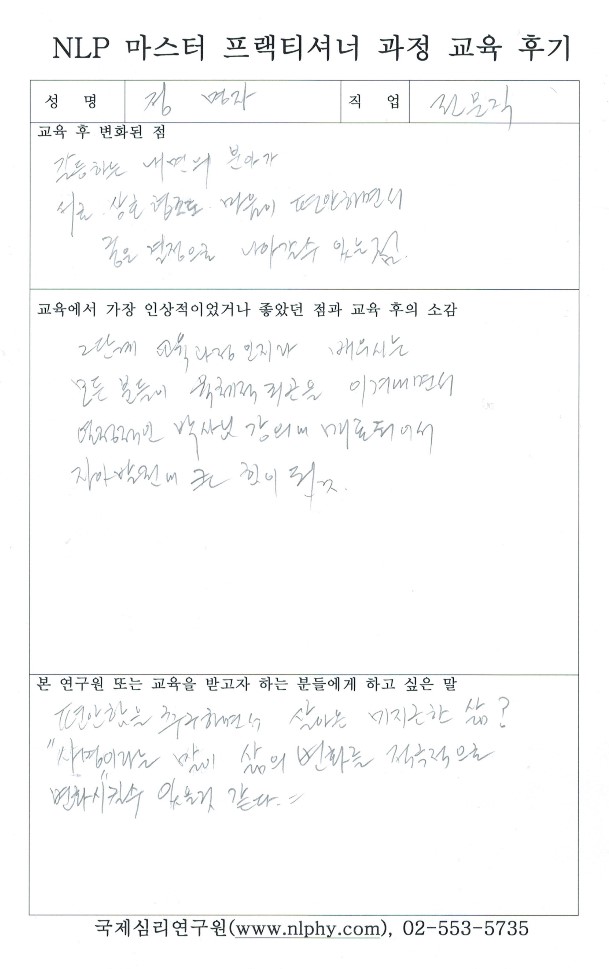 NLP 마스터 프랙티셔너 과정 교육 후기
성 명 정 명자 직 업 전문직
교육 후 변화된 점
갈등하는 내면의 분아가
서로 상호 협조로 마음이 편안해면서
좋은 결정으로 나아갈수 있는점.
교육에서 가장 인상적이었거나 좋았던 점과 교육 후의 소감
2단계 교육과정 인지라 배우시는
모든 분들이 육체적 피곤을 이겨내면서
열정적인 박사님 강의에 매료되어서
자아발전에 큰 힘이 됨.
본 연구원 또는 교육을 받고자 하는 분들에게 하고 싶은 말
편안함을 추구하면서 살아온 미지근한 삶?
"사명이라는 말이 삶의 변화를 적극적으로
변화시킬수 있을것 같다.
국제심리연구원(www.nlphy.com), 02-553-5735